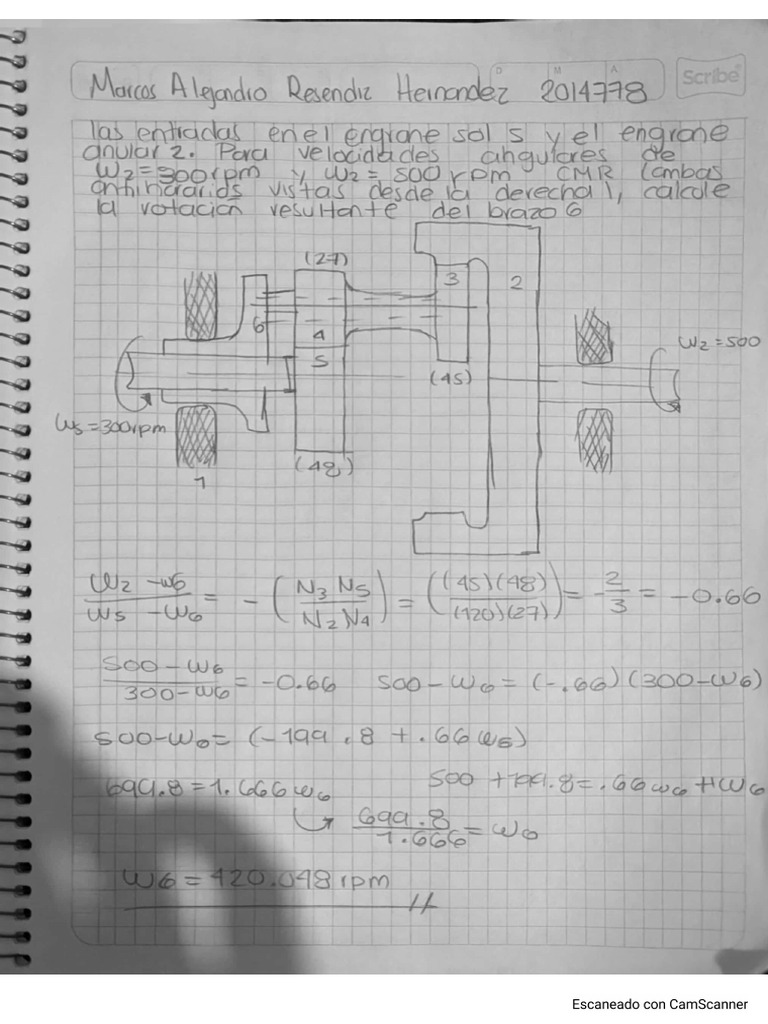 Marcos Alejandro Resendiz Hernandez 2014778
Scribe
las entradas en el engrane sol 5 y el engrane
anular 2. Para velocidades angulares de
W2=300rpm y W2 = 500 rpm CMR (ambas
antihorarios vistas desde la derecha), calcule
la rotacion resultante del brazo 6
(27)
3
2
6
4
5
W2=500
(45)
W5=300rpm
(48)
1
W2 -W6 / W5 -W6 = - (N3 N5 / N2 N4) = ((45)(48) / (120)(27)) = - 2/3 = -0.66
500-W6 / 300-W6 = -0.66 500-W6 = (-.66)(300-W6)
500-W6= (-199.8 + .66 W6)
699.8=1.666W6 500 +199.8=.66W6+W6
699.8 / 1.666 = W6
W6 = 420.048 rpm
Escaneado con CamScanner